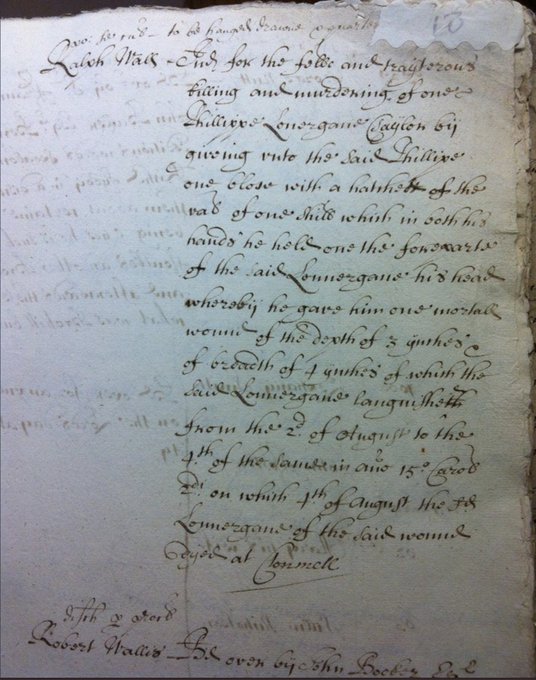 to be hanged drawne & quart
Ralph Wall - Ind for the fello and trayterous
killing and murdering of one
Phillippe Lonergane Taylor by
giveing unto the said Phillipe
one blow with a hatchett of the
val of one shill which in both his
hands he held one the foreparte
of the said Lonnergane his head
whereby he gave him one mortall
wound of the depth of 3 ynches &
of breadth of 4 ynches of which the
said Lonnergane languisheth
from the 2d. of August to the
4th of the same in ano 15o Carol
2di on which 4th of August the sd
Lonnergane of the said wound
dyed at Clonmell
Robert Wallis - Bd over by John Booker Esqr